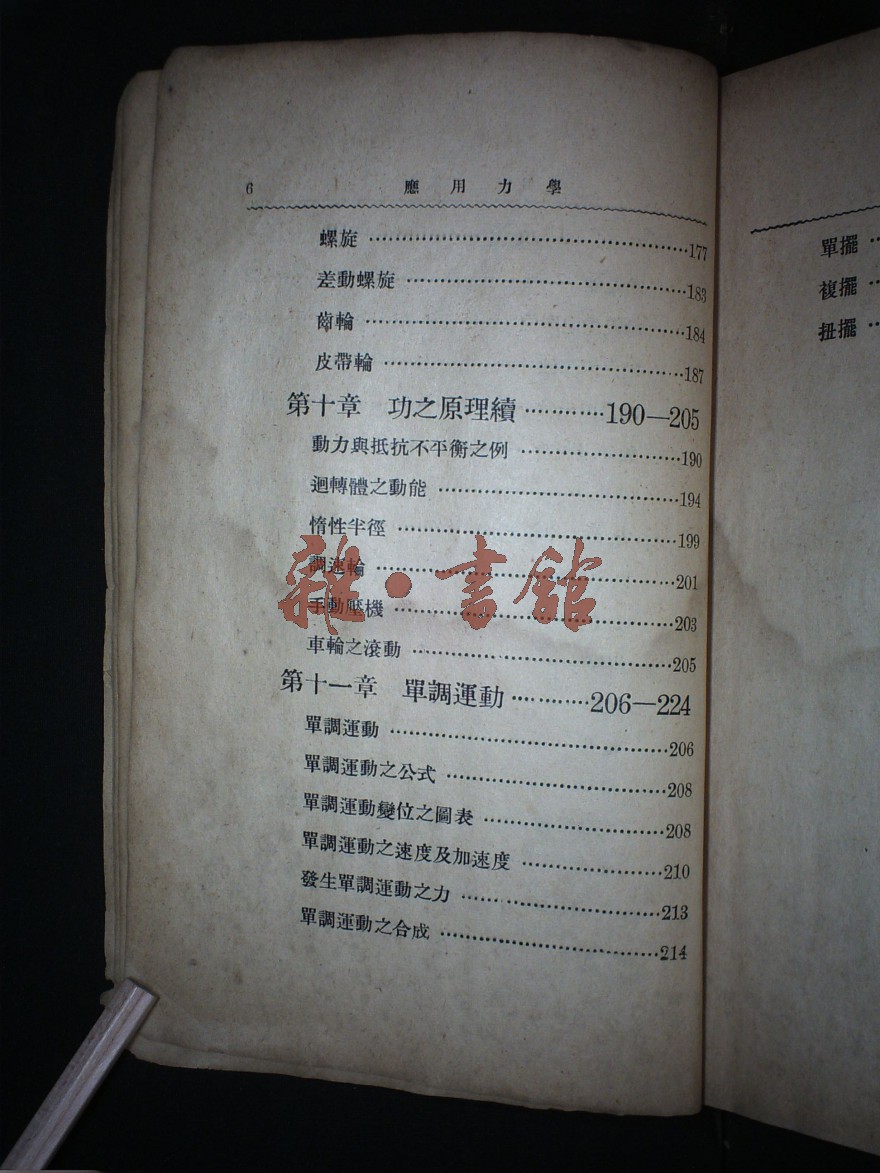 6 應用力學
螺旋 ……………………………177
差動螺旋 ……………………………183
齒輪 ……………………………184
皮帶輪 ……………………………187
第十章 功之原理續 …………190—205
動力與抵抗不平衡之例 ……………………190
迴轉體之動能 ……………………………194
惰性半徑 ……………………………199
調速輪 ……………………………201
手動壓機 ……………………………203
車輪之滾動 ……………………………205
第十一章 單調運動 …………206—224
單調運動 ……………………………206
單調運動之公式 ……………………………208
單調運動變位之圖表 ……………………208
單調運動之速度及加速度 ………………210
發生單調運動之力 ……………………213
單調運動之合成 ……………………………214
單擺 …
複擺 …
扭擺 …
雜·書館